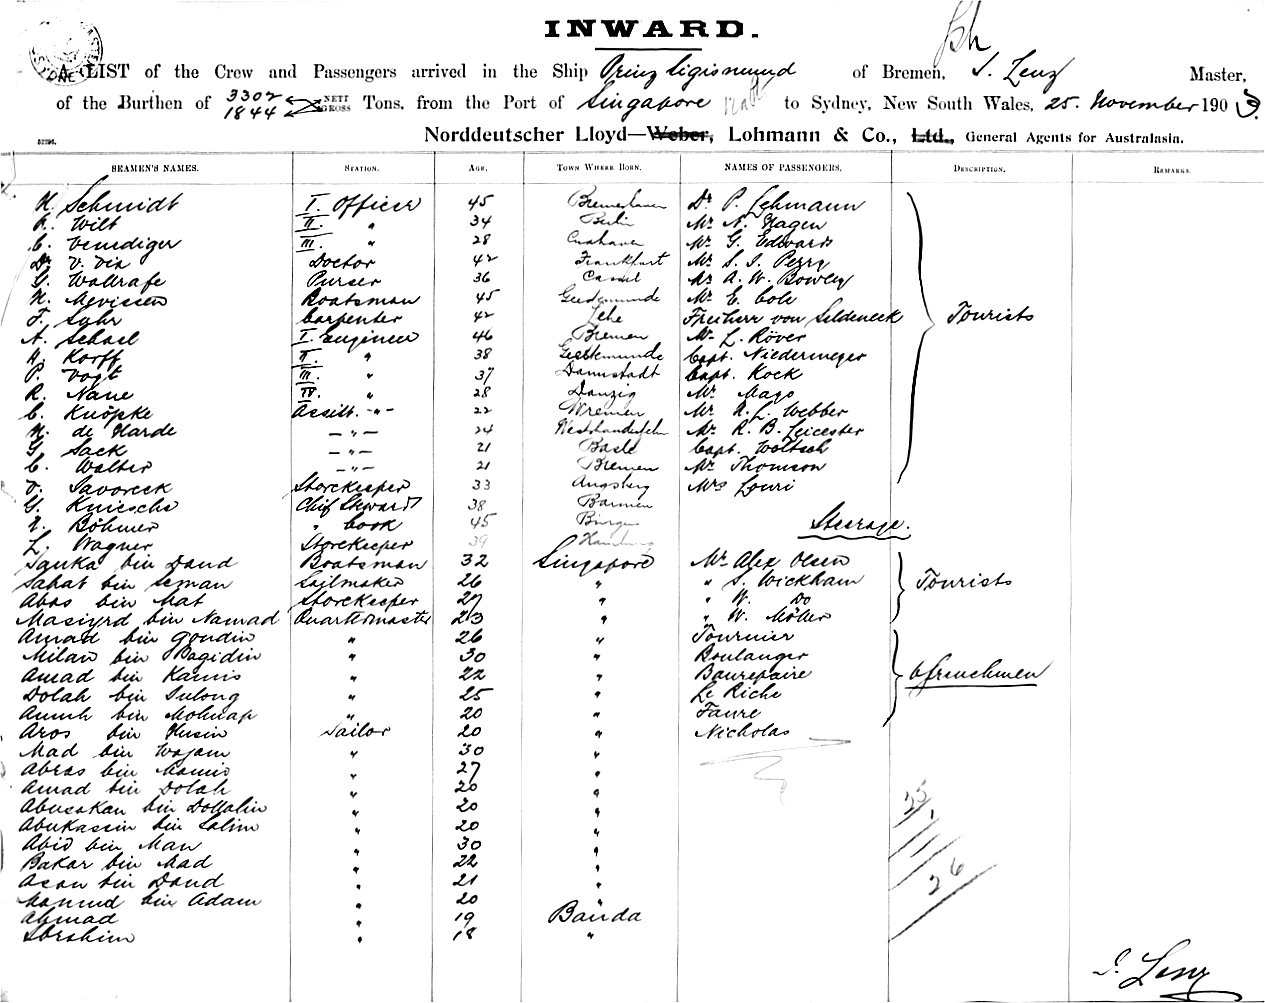 INWARD.
A LIST of the Crew and Passengers arrived in the Ship Prinz Sigismund of Bremen, S. Lenz Master,
of the Burthen of 3302 1844 NETT GROSS Tons, from the Port of Singapore to Sydney, New South Wales, 25. November 1903.
Norddeutscher Lloyd—Weber, Lohmann & Co., Ltd., General Agents for Australasia.
SEAMEN'S NAMES. STATION. AGE. TOWN WHERE BORN. NAMES OF PASSENGERS. DESCRIPTION. REMARKS.
H. Schmidt I. Officer 45 Bremerhaven Dr P. Lehmann
R. Wilt II. " 34 Berlin Mr N. Hagen
C. Venediger III. " 28 Cuxhaven Mr G. Edwards
Dr V. Vix Doctor 42 Frankfurt Mr S. J. Perry
G. Wallrafe Purser 36 Cassel Mr A. W. Bowley
H. Mevissen Boatsman 45 Geestemunde Mr E. Cole
F. Sahr Carpenter 42 Lehe Freiherr von Seldeneck Tourists
A. Schael I. Engineer 46 Bremen Mr L. Röver
H. Korff II. " 38 Geestemunde Capt. Niedermeyer
P. Vogt III. " 37 Darmstadt Capt. Kock
R. Nane IV. " 28 Danzig Mr Mayo
C. Knöpke Assist. -"- 22 Bremen Mr A. L. Webber
H. de Harde -"- 24 Mr R. B. Leicester
G. Sack -"- 21 Basle Capt. Woltsch
C. Walter -"- 21 Bremen Mr Thomson
V. Savoreck Storekeeper 33 Augsberg Mrs Louri
G. Kniesche Chief Steward 38 Barmen
Böhmer " Cook 45 Steerage.
L. Wagner Storekeeper 39 Hamburg
Sanka bin Daud Boatsman 32 Singapore Mr Alex Olsen
Sahat bin Seman Sailmaker 26 " " S. Wickham Tourists
Abas bin Mat Storekeeper 27 " " W. Do
Masiyrd bin Namad Quartermaster 23 " " W. Möller
Amad bin Goudin " 26 " Fournier
Milan bin Bagidin " 30 " Boulanger
Amad bin Kamis " 22 " Baurepaire 6 frenchmen
Dolah bin Sulong " 25 " Le Riche
Amih bin Mohnap " 20 " Faure
Aros bin Husin Sailor 20 " Nicholas
Mad bin Wajam " 30 "
Abras bin Mamis " 27 "
Amad bin Dolah " 20 "
Abusakan bin Dollalin " 20 "
Abukassin bin Salim " 20 "
Abid bin Man " 30 "
Bakar bin Mad " 22 "
Asan bin Daud " 21 "
Mamud bin Adam " 20 "
Ahmad " 19 Banda
Ibrahim " 18 "
25/11/26
S. Lenz